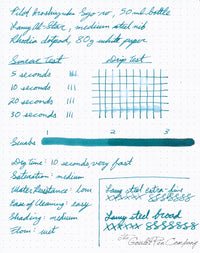 Pilot Iroshizuku Syo-ro, 50 ml bottle
Lamy Al-Star, medium steel nib
Rhodia dotpad, 80g white paper
Smear Test
Drip test
5 seconds
10 seconds
20 seconds
30 seconds
Swabs
1 2 3
Dry time: 10 seconds very fast
Saturation: medium
Water Resistance: low
Ease of Cleaning: easy
Shading: medium
Flow: wet
Lamy steel extra-fine
xxxxxx 8888888
Lamy steel broad
xxxxxx 8888888
The Goulet Pen Company